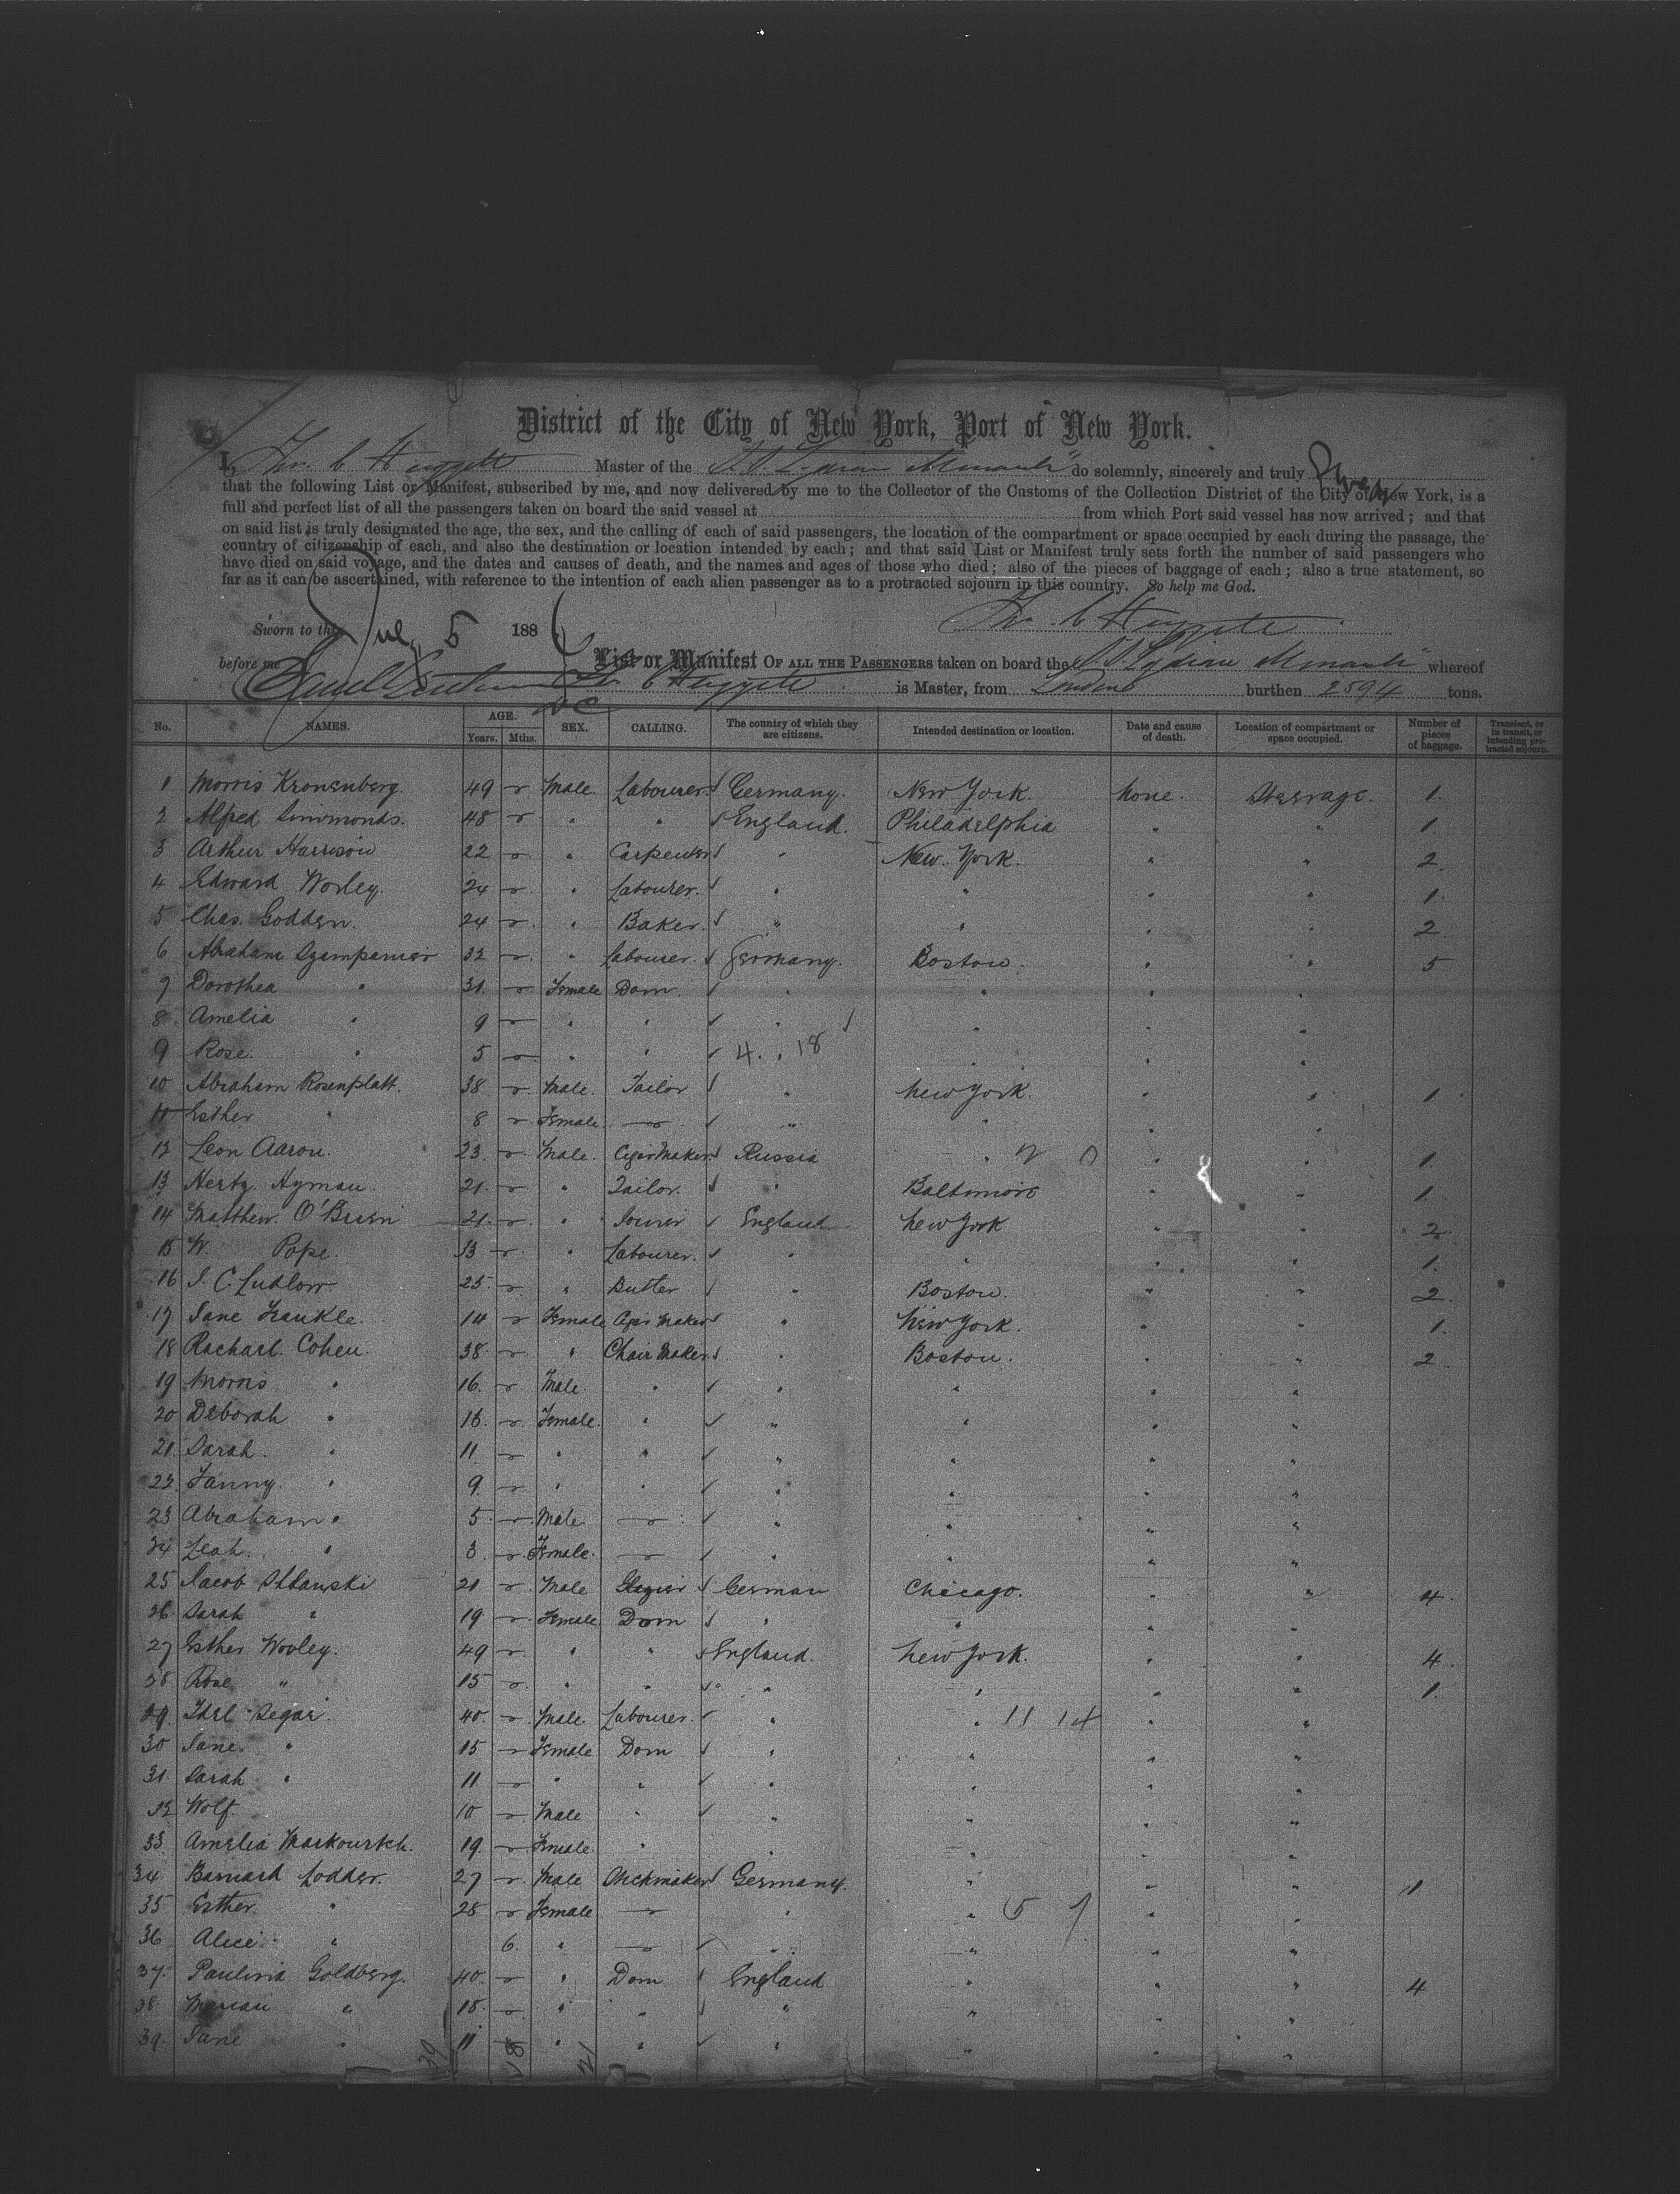 District of the City of New York, Port of New York.
I, Thos. C Huggett Master of the S.S. "Lydian Monarch" do solemnly, sincerely and truly Swear
that the following List or Manifest, subscribed by me, and now delivered by me to the Collector of the Customs of the Collection District of the City of New York, is a
full and perfect list of all the passengers taken on board the said vessel at from which Port said vessel has now arrived; and that
on said list is truly designated the age, the sex, and the calling of each of said passengers, the location of the compartment or space occupied by each during the passage, the
country of citizenship of each, and also the destination or location intended by each; and that said List or Manifest truly sets forth the number of said passengers who
have died on said voyage, and the dates and causes of death, and the names and ages of those who died; also of the pieces of baggage of each; also a true statement, so
far as it can be ascertained, with reference to the intention of each alien passenger as to a protracted sojourn in this country. So help me God.
Thos. C Huggett
Sworn to this 5 188
before me
List or Manifest OF ALL THE PASSENGERS taken on board the S.S. "Lydian Monarch" whereof
Thos C Huggett is Master, from London burthen 2594 tons.
No. NAMES. AGE. Years. Mths. SEX. CALLING. The country of which they are citizens. Intended destination or location. Date and cause of death. Location of compartment or space occupied. Number of pieces of baggage. Transient, or in transit, or intending protracted sojourn.
1 Morris Kronenberg. 49 Male. Labourer. Germany. New York. None. Steerage. 1.
2 Alfred Simmonds. 48 " " England. Philadelphia " " 1.
3 Arthur Harrison 22 " Carpenter " New York. " " 2
4 Edward Worley. 24 " Labourer. " " " " 1.
5 Chas. Godden. 24 " Baker. " " " " 2.
6 Abraham 32 " Labourer. Germany. Boston. " " 5
7 Dorothea " 31. Female Dom. " " " "
8 Amelia " 9 " " " " " "
9 Rose. " 5 " " 4. " 18 " " "
10 Abraham Rosenplatt. 38 Male. Tailor " New York. " " 1.
11 Esther " 8 Female. " " " "
12 Leon Aaron. 23. Male. Cigar Maker Russia " " " 1.
13 Hertz Hyman. 21. " Tailor. " Baltimore " " 1.
14 Matthew O'Brien 21. " Joiner England New York " " 2.
15 W. Pope. 33 " Labourer. " " " " 1.
16 J. C. Ludlow 25 " Butler " Boston. " " 2.
17 Jane Frankle. 14 Female Cigar Maker " New York. " " 1.
18 Rachael Cohen. 38 " Chair Maker. " Boston. " " 2
19 Morris " 16. Male. " " " " "
20 Deborah " 16. Female. " " " " "
21. Sarah. " 11 " " " " " "
22. Fanny. " 9. " " " " " "
23 Abraham " 5. Male " " " "
24 Leah. " 3. Female. " " " "
25 Jacob 21 Male Glazier German Chicago. " " 4.
26 Sarah " 19. Female Dom " " " "
27 Esther Wooley. 49 " " England. New York. " " 4.
28 Rose " 15 " " " " " " 1.
29. Segar. 40. Male. Labourer. " " 11 14 " "
30 Jane. " 15 Female Dom " " " "
31. Sarah " 11 " " " " " "
32 Wolf. 10 Male " " " " "
33 Amelia 19. Female. " " " " "
34 Barnard Lodder. 27 Male Germany. " " " 1
35 Esther " 28 Female " " " "
36 Alice " 6. " " " " "
37. Paulina Goldberg. 40. " Dom England " " " 4
38. " 18. " " " " " "
39. Jane " 11 " " " " " "